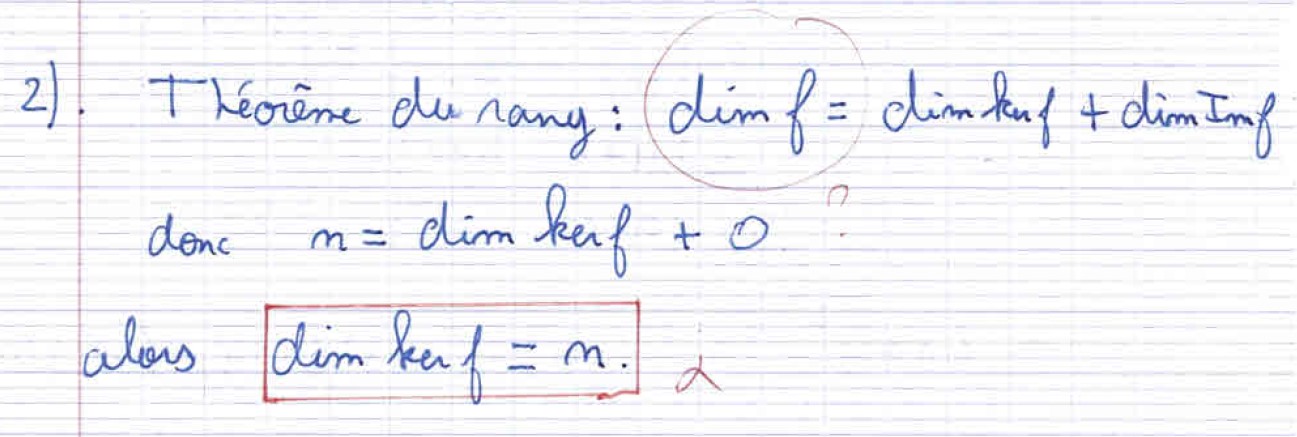 2). Théorème du rang : dim f = dim ker f + dim Im f
donc n = dim ker f + 0 ?
alors dim ker f = n.